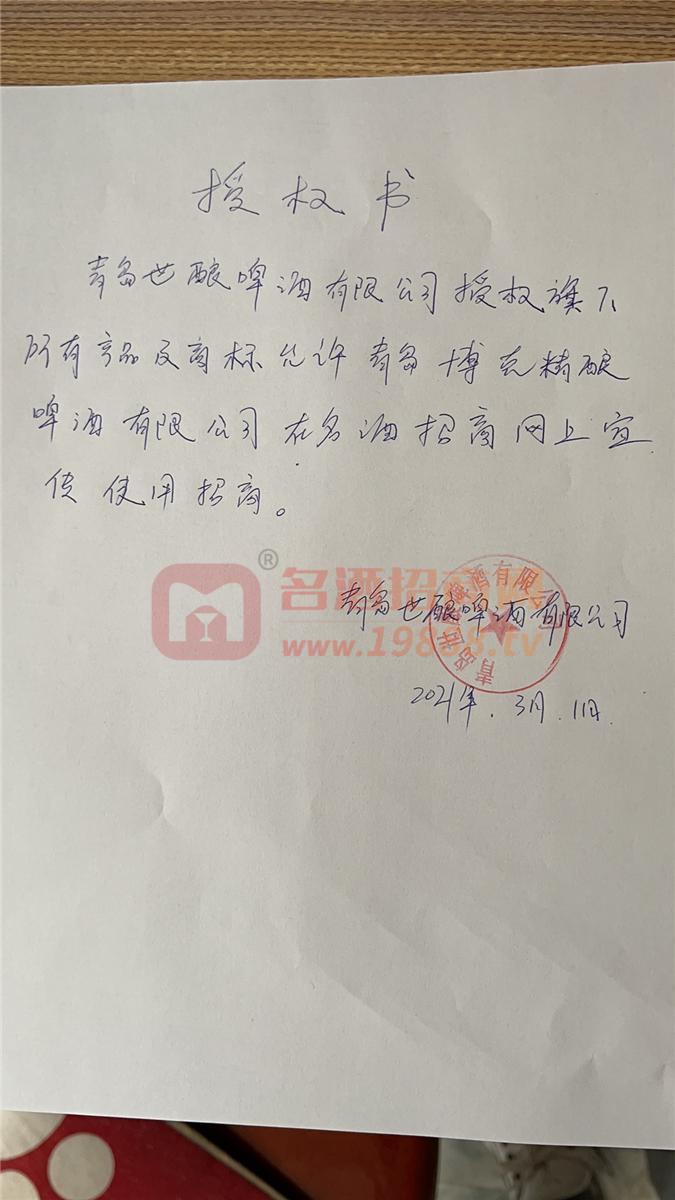 授权书
青岛世酿啤酒有限公司授权旗下
所有产品及商标允许青岛博克精酿
啤酒有限公司在名酒招商网上宣
传使用招商。
青岛世酿啤酒有限公司
2021年.3月.11日.
®
名酒招商网
www.19888.tv